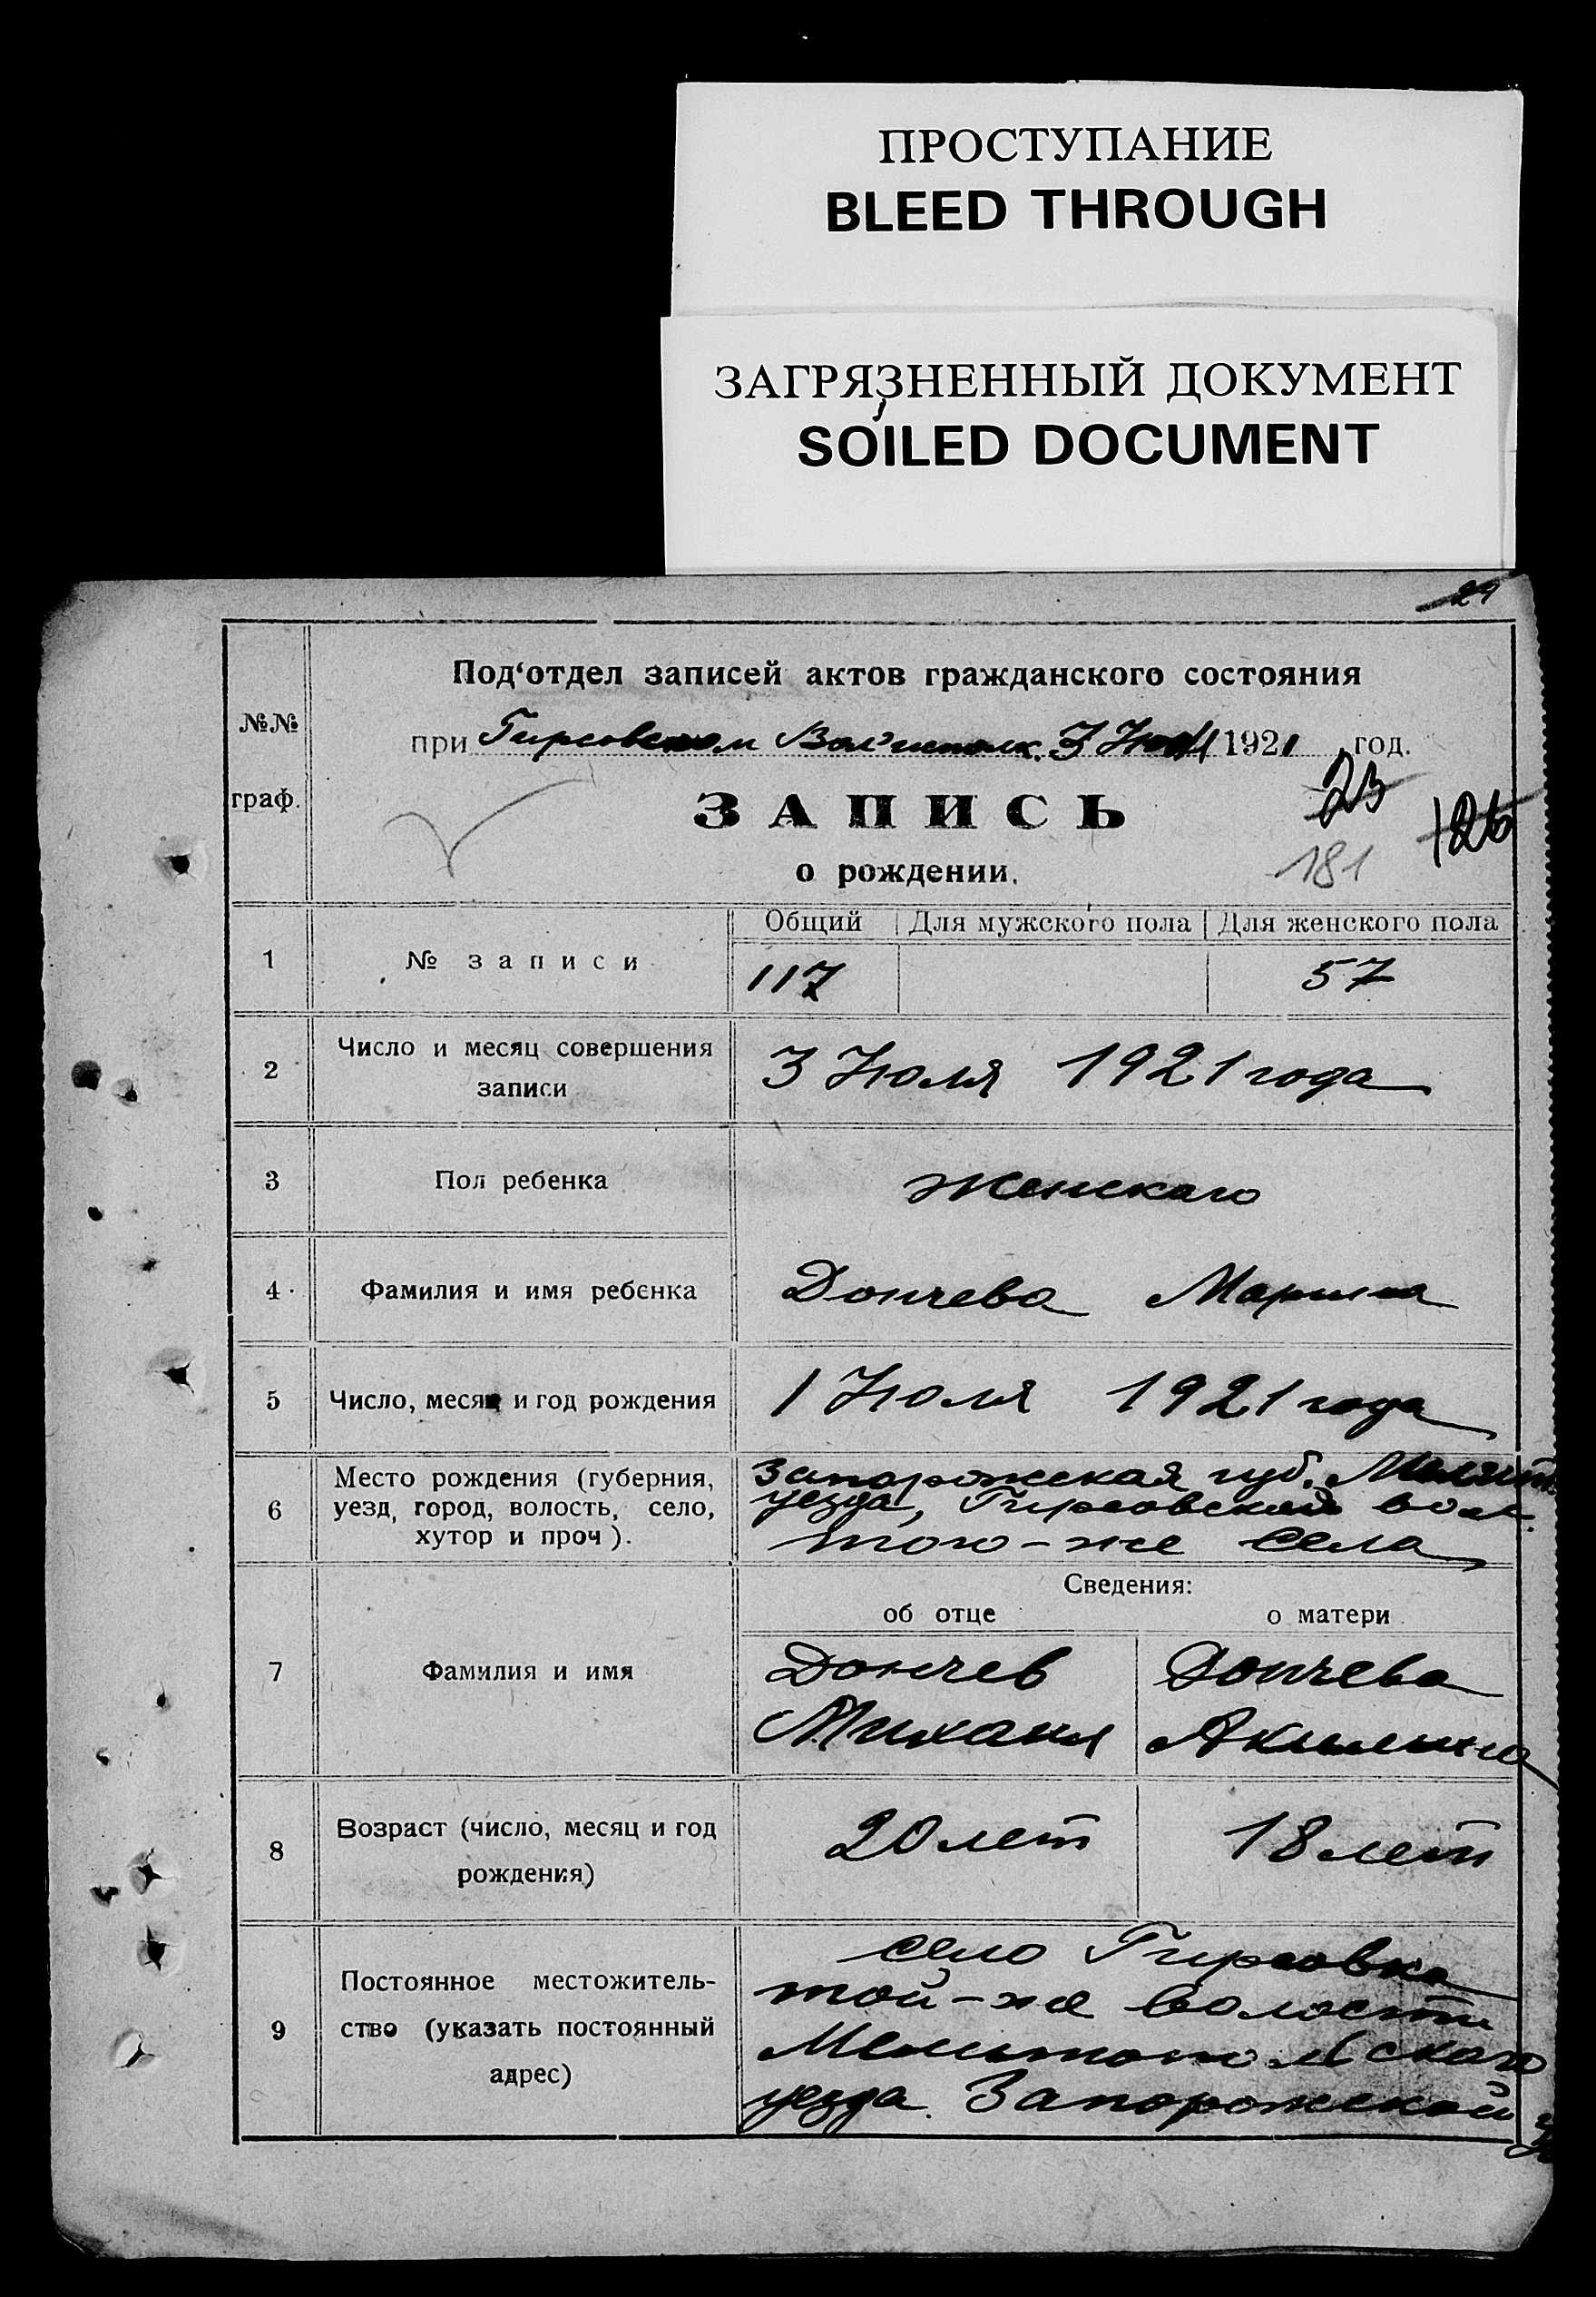 ПРОСТУПАНИЕ
BLEED THROUGH
ЗАГРЯЗНЕННЫЙ ДОКУМЕНТ
SOILED DOCUMENT
29
Под‘отдел записей актов гражданского состояния
№№
граф.
при Гирсовском Вол'исполк. 3 Июля 1921 год.
ЗАПИСЬ
23
126
181
о рождении.
Общий Для мужского пола Для женского пола
1 № записи 117 57
2 Число и месяц совершения
записи
3 Июля 1921 года
3 Пол ребенка Женскаго
4 Фамилия и имя ребенка Дончева Марина
5 Число, месяц и год рождения 1 Июля 1921 года
6 Место рождения (губерния,
уезд, город, волость, село,
хутор и проч).
Запорожская губ. Мелит.
уезда, Гирсовской вол.
того-же села
Сведения:
об отце о матери
7 Фамилия и имя
Дончев Дончева
Михаил Акилина
8 Возраст (число, месяц и год
рождения)
20 лет 18 лет
9 Постоянное местожитель-
ство (указать постоянный
адрес)
село Гирсовка
той-же волости
Мелитопольскаго
уезда. Запорожской